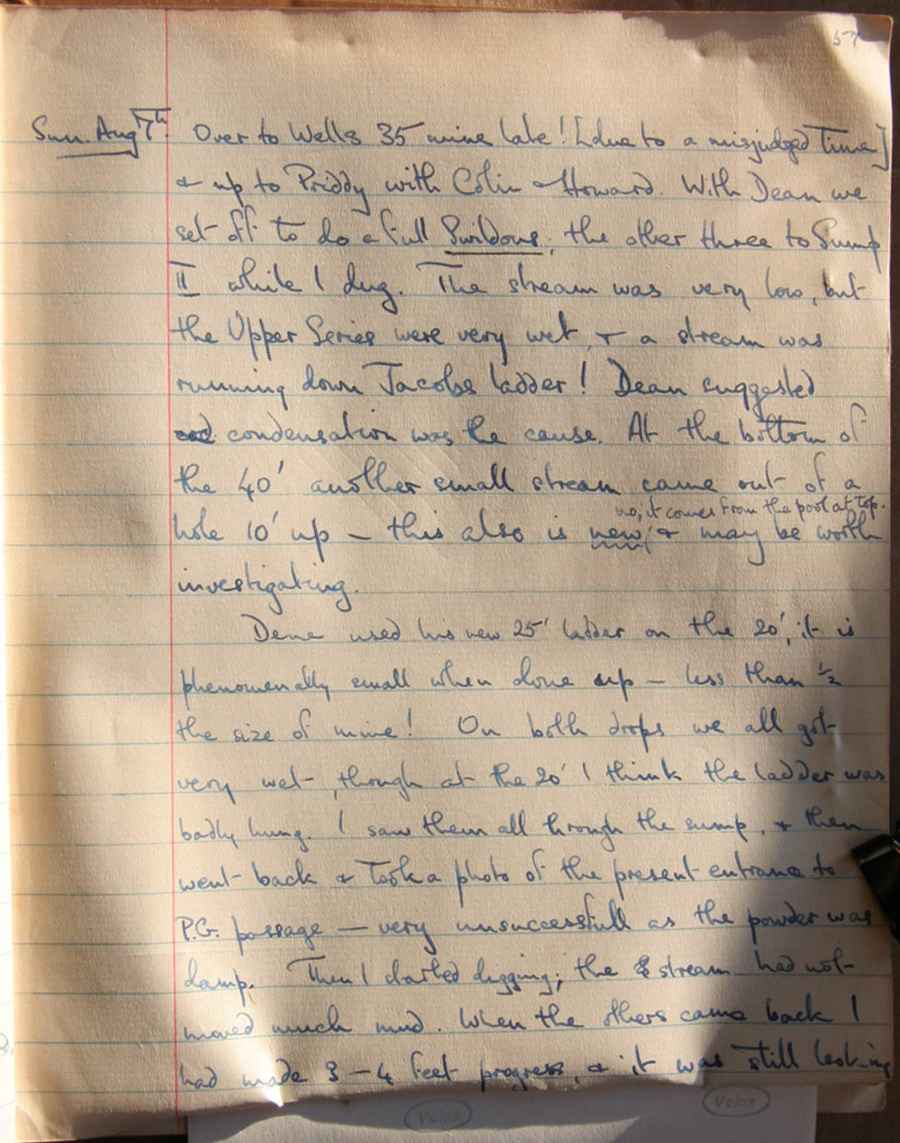 57
Sun. Aug 7th. Over to Wells 35 mins late! [due to a misjudged Time]
& up to Priddy with Colin & Howard. With Dean we
set off to do a full Swildons; the other three to Sump
II while I dug. The stream was very low, but
the Upper Series were very wet, & a stream was
running down Jacobs ladder! Dean suggested
condensation was the cause. At the bottom of
the 40' another small stream came out of a
no, it comes from the pool at top.
hole 10' up – this also is new, & may be worth
investigating.
Dene used his new 25' ladder on the 20', it is
phenomenally small when done up – less than ½
the size of mine! On both drops we all got
very wet, though at the 20' I think the ladder was
badly hung. I saw them all through the sump, & then
went back & Took a photo of the present entrance to
P.G. passage – very unsuccessfull as the powder was
damp. Then I started digging; the stream had not
moved much mud. When the others came back I
had made 3 – 4 feet progress, & it was still looking
Velox
Velox